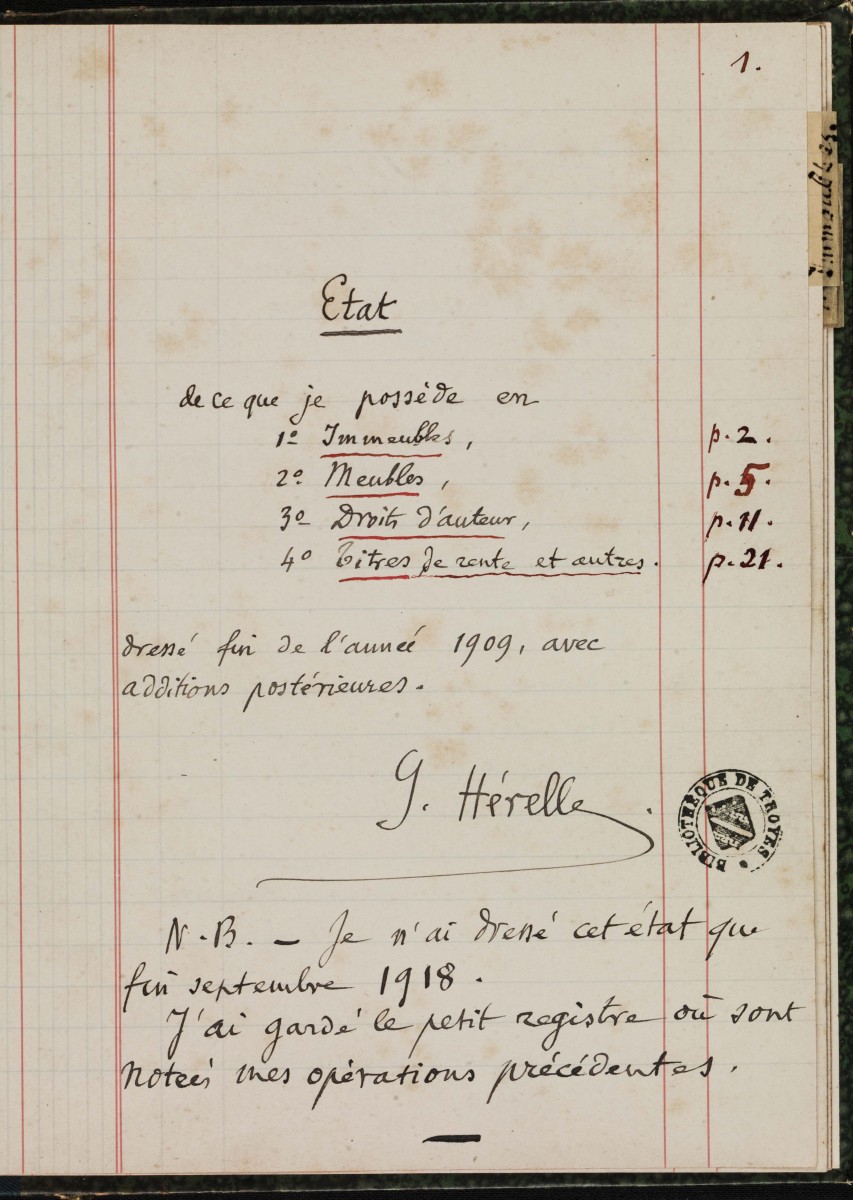 1.
Immeubles.
Etat
de ce que je possède en
1º Immeubles, p. 2.
2º Meubles, p. 5.
3º Droits d'auteur, p. 11.
4º Titres de rente et autres. p. 21.
dressé fin de l'année 1909, avec
additions postérieures.
G. Hérelle.
BIBLIOTHÈQUE DE TROYES
N.B. — Je n'ai dressé cet état que
fin septembre 1918.
J'ai gardé le petit registre où sont
notées mes opérations précédentes.